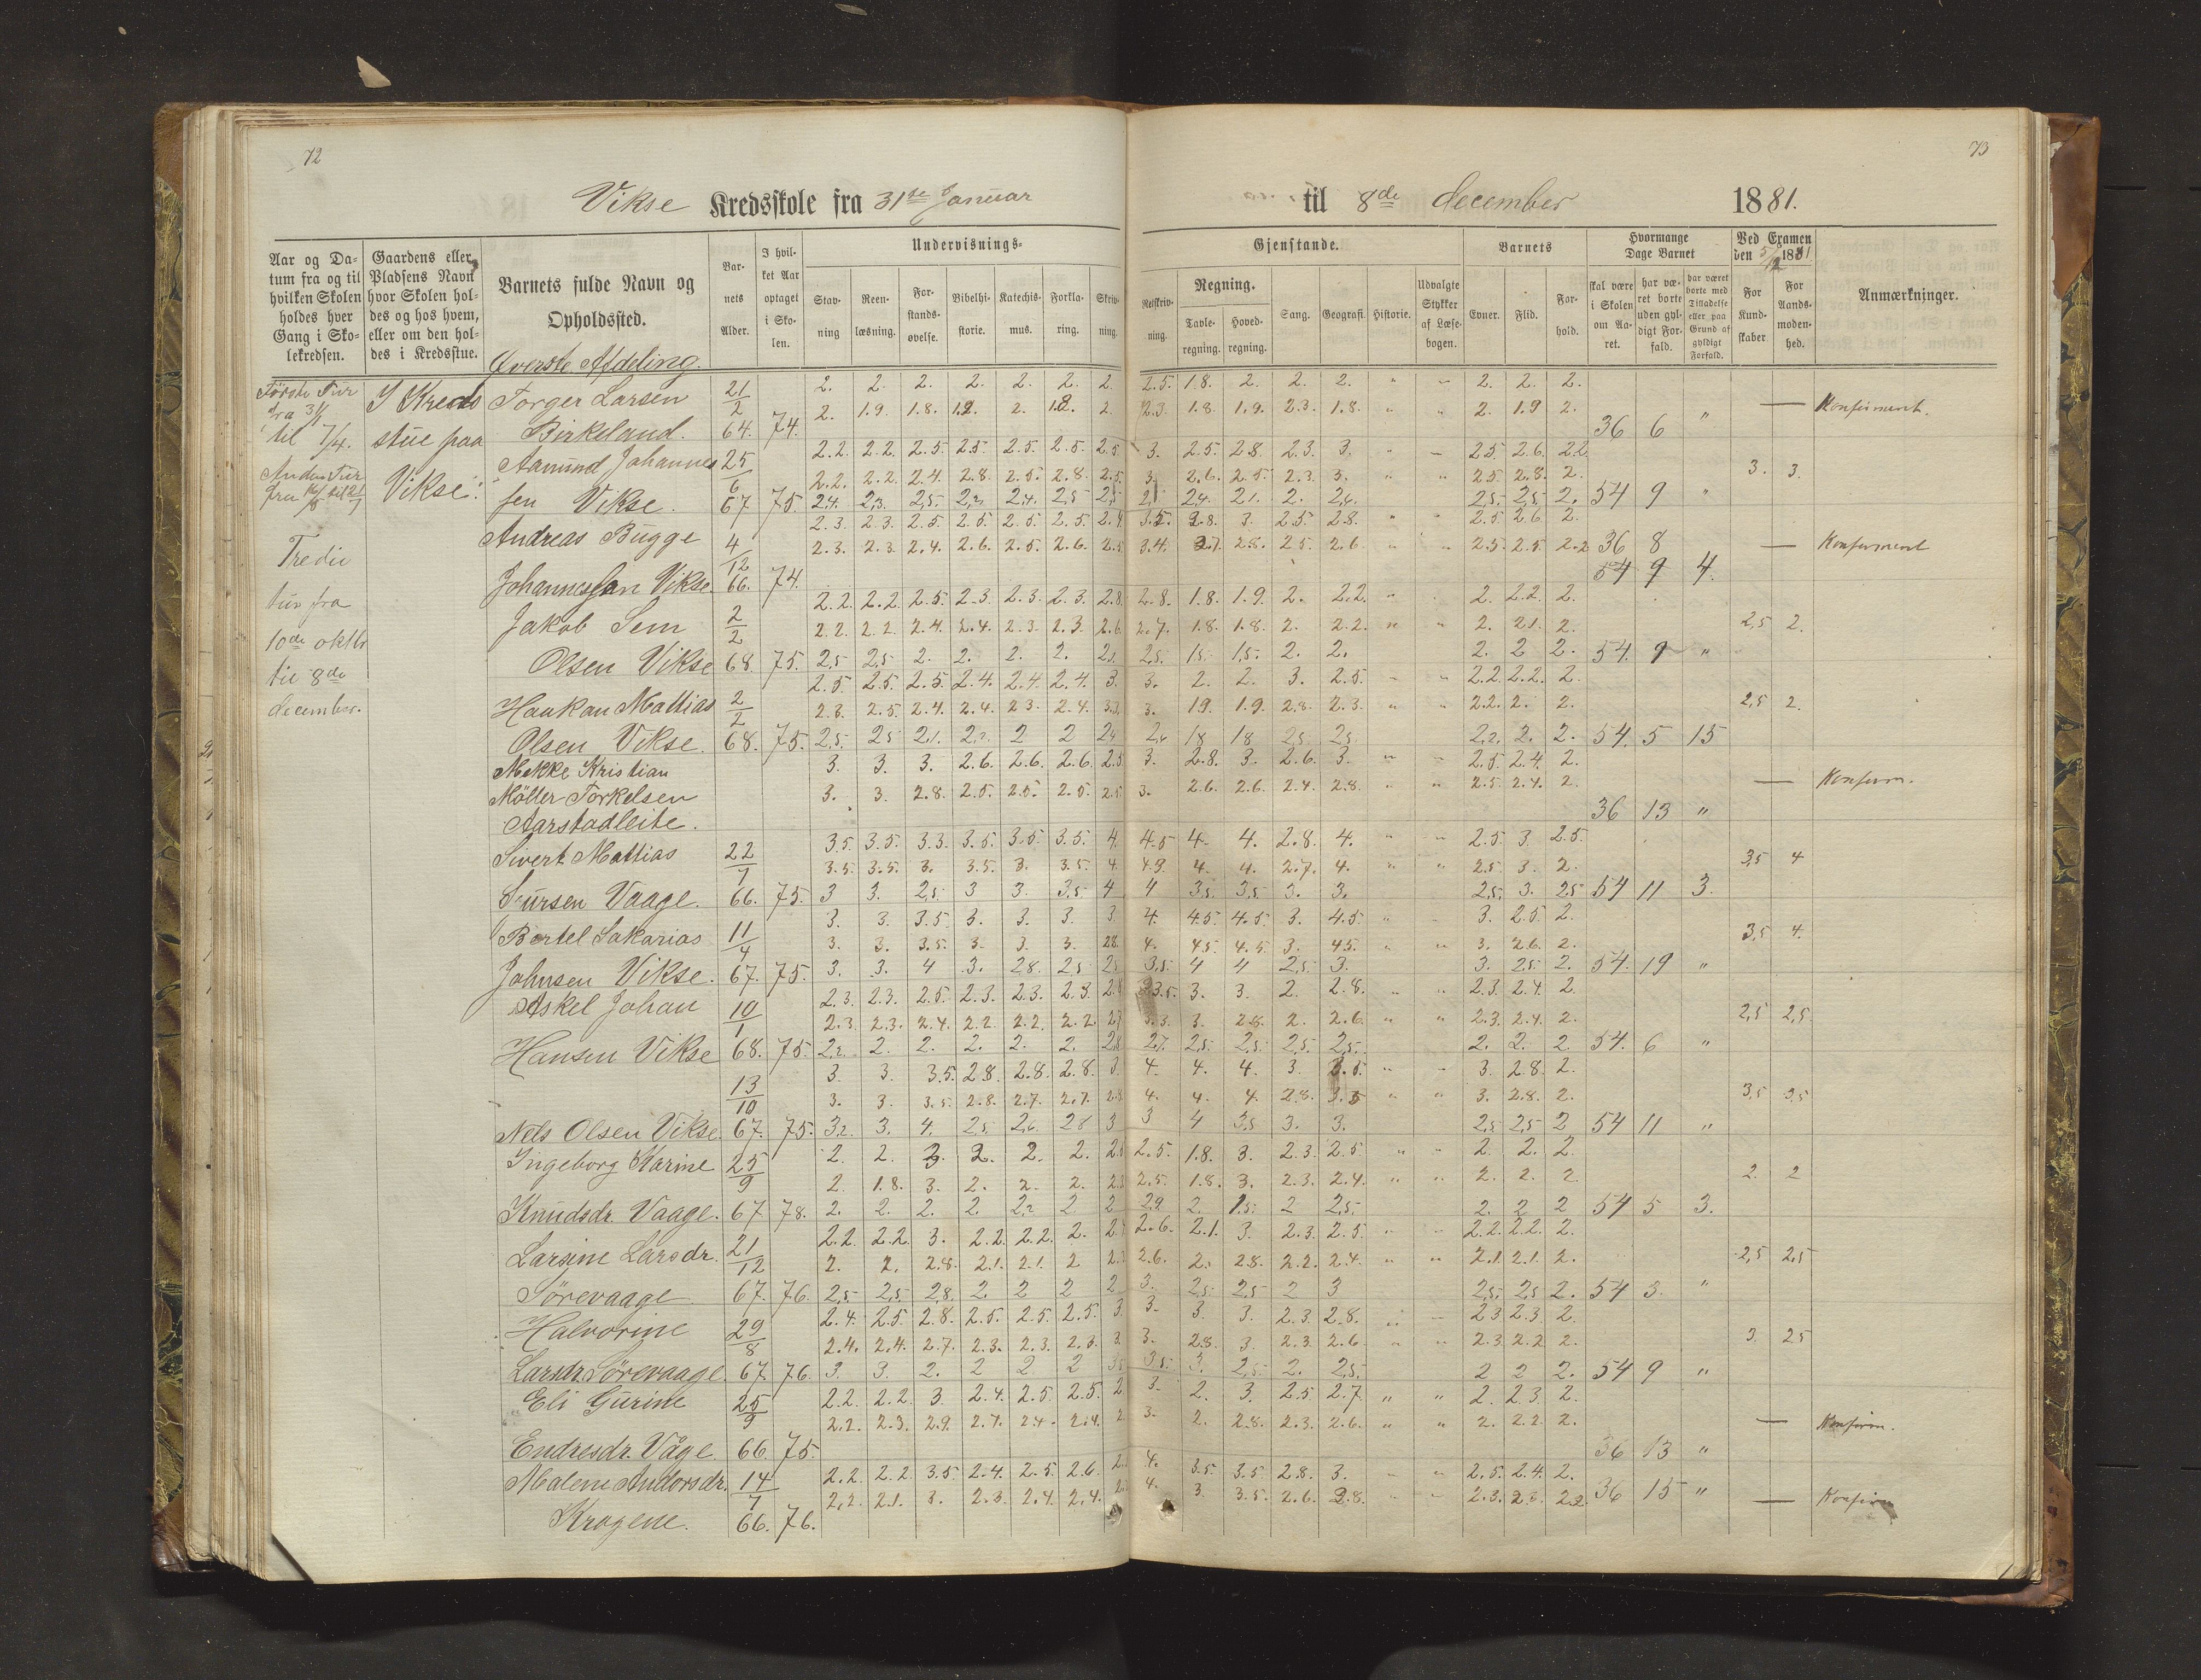 72
73
Vikse Kredsskole fra 31te Januar til 8de december 1881.
Aar og Datum fra og til hvilken Skolen holdes hver Gang i Skolekredsen.
Gaardens eller Pladsens Navn hvor Skolen holdes og hos hvem, eller om den holdes i Kredsstue.
Barnets fulde Navn og Opholdssted.
Barnets Alder.
I hvilket Aar optaget i Skolen.
Undervisnings-
Gjenstande.
Stavning
Reenlæsning.
Forstandsøvelse.
Bibelhistorie.
Katechismus.
Forklaring.
Skrivning.
Retskrivning.
Regning.
Tavleregning.
Hovedregning.
Sang.
Geografi.
Historie.
Udvalgte Stykker af Læsebogen.
Barnets
Evner.
Flid.
Forhold.
Hvormange Dage Barnet
skal være i Skolen om Aaret.
har været borte uden gyldigt Forfald.
har været borte med Tilladelse eller paa Grund af gyldigt Forfald.
Ved Examen den 5/12 1881
For Kundskaber
For Aandsmodenhed.
Anmærkninger.
Øverste Afdeling.
Første Tur
fra 31/1
til 7/4.
I Kreds
stue paa
Vikse.
Tredie
tur fra
10de oktbr
til 8de
december.
Torger Larsen 21/2 2. 2. 2. 2. 2. 2. 2. 2.5. 1.8. 2. 2. 2. " " 2. 2. 2.
Birkeland. 64. 74. 2. 1.9. 1.8. 2. 2. 1.8. 1.9. 2.3. 1.8. " " 2. 1.9 2. 36 6 " — Konfirment.
Aamund Johannes 25/6 2.2. 2.2. 2.5. 2.5. 2.5. 2.5. 2.5. 3. 2.5. 2.8. 2.3. 3. " " 2.5. 2.6. 2.2.
2.2. 2.2. 2.4. 2.8. 2.5. 2.8. 2.5. 3. 2.6. 2.5. 2.3. 3. " " 2.5 2.8. 2. 3. 3.
sen Vikse. 67 75. 54 9 "
Andreas Bugge 4/12 2.3. 2.3. 2.5. 2.5. 2.5. 2.5. 2.4 3.5. 2.8. 3. 2.5. 2.8. " " 2.5 2.6 2.
2.3. 2.3. 2.4. 2.6. 2.5. 2.6. 2.5 3.4. 2.7. 2.8. 2.5. 2.6 " " 2.5. 2.5. 2.2 36 8 — Konfirment
Johannessen Vikse. 66. 74. 54 9 4.
Jakob Sem 2/2 2.2. 2.2. 2.5. 2.3. 2.3. 2.3. 2.8. 2.8. 1.8. 1.9. 2. 2.2. " 2. 2.2. 2.
2.2. 2.2. 2.4. 2.4. 2.3. 2.3. 2.6. 2.7. 1.8. 1.8. 2. 2.2. " " 2. 2.1. 2. 2,5 2.
Olsen Vikse 68. 75. 2,5 2,5 2. 2. 2. 2. 2,5. 1,5. 1,5. 2. 2. 2. 2 2. 54. 9 "
Haakan Mattias 2/2 2.5. 2.5. 2.5. 2.4. 2.4. 2.4. 3. 3. 2. 2. 3. 2.5. " " 2.2. 2.2. 2.
2.5. 2.4. 2.4. 2.3. 2.4. 3. 1.9. 1.9. 2.8. 2.3. " " 2.2. 2. 2. 2,5 2.
Olsen Vikse. 68. 75. 2,5. 2,5 2,1. 2 2 18 18 2,5 2,5. 2. 2. 54. 5 15
Mekke Kristian 3. 3. 3. 2.6. 2.6. 2.6. 2.5 3. 2.8. 3. 2.6. 3. " " 2.5. 2.4. 2.
Møller Torkelsen 3. 3. 2.8. 2.5. 2.5. 2.5. 2.5. 3. 2.6. 2.6. 2.4. 2.8. " " 2.5. 2.4. 2. — Konfirm.
Aarstadleite. 36 13 "
Sivert Mattias 22/7 3.5. 3.5. 3.3. 3.5. 3.5. 3.5. 4. 4.5 4. 4. 2.8. 4. " " 2.5. 3. 2.5.
3.5. 3.5. 3. 3.5. 3. 3.5. 4. 4.3. 4. 4. 2.7. 4. " " 2.5 3. 2. 3,5 4
Sjursen Vaage. 66. 75. 3 3. 2,5 3 3. 3,5 4 4 3,5 3,5 3. 3. 2,5. 3. 2,5 54 11 3.
Bertel Sakarias 11/4 3. 3. 3.5 3. 3. 3. 3. 4. 4.5 4.5. 3. 4.5. " " 3. 2.5. 2.
3. 3. 3.5. 3. 3. 3. 2.8. 4. 4.5 4.5 3. 4.5. " " 3. 2.6. 2. 3,5 4.
Johnsen Vikse. 67. 75. 3. 3. 4 3. 2.8. 2,5 3,5. 4 4 2,5. 3. 3. 2,5. 2. 54. 19 "
Askel Johan 10/1 2.3. 2.3. 2.5. 2.3. 2.3. 2.3. 3.5. 3. 3. 2. 2.8. " " 2.3. 2.4. 2.
2.3. 2.3. 2.4. 2.2. 2.2. 2.2. 2.7 3.3. 3. 2.8. 2. 2.6. " " 2.3. 2.4. 2. 2,5 2,5
Hansen Vikse 68. 75. 2. 2. 2. 2. 2. 2,7. 2,5. 2,5. 2,5. 2,5. 2. 2. 2. 54. 6 "
13/10 3. 3. 3.5. 2.8. 2.8. 2.8. 3. 4. 4. 4. 3. 3.5. " " 3. 2.8. 2.
3. 3. 3.5. 2.8. 2.7. 2.7. 2.8. 4. 4. 4. 2.8. 3.5 " " 3. 2.8. 2. 3,5 3,5
Nels Olsen Vikse. 67. 75. 3. 4. 2,5 2,6 2.8 3 3 4 3,5 3. 3. 2,5. 2,5 2 54 11 "
Ingeborg Karine 25/9 2. 2. 3. 2. 2. 2. 2.5. 1.8. 3. 2.3. 2.5 " " 2. 2. 2.
2. 1.8. 3. 2. 2. 2. 2.5. 1.8. 3. 2.3. 2.4. " " 2. 2. 2. 2. 2
Knudsdr. Vaage. 67 78. 2. 2. 2. 2. 2 2 2. 1,5. 2 2,5. 2. 2 2 54 5 3.
Larsine Larsdr. 21/12 2.2. 2.2. 3. 2.2. 2.2. 2. 2.6. 2.1. 3. 2.3. 2.5. " " 2.2. 2.2. 2.
2. 2. 2.8. 2.1. 2.1. 2 2.6. 2. 2.8. 2.2. 2.4. " " 2.1. 2.1. 2. 2,5 2,5
Sørevaage 67. 76. 2,5 2,5 2,8. 2. 2 2 2 3. 2,5 2,5 2 3 2,5. 2,5 2. 54 3. "
Halvorine 29/8 2.4. 2.5. 2.8. 2.5. 2.5. 2.5. 3. 3. 3. 3. 2.3. 2.8. " " 2.3 2.3. 2.
2.4. 2.4. 2.7. 2.3. 2.3. 2.3. 3. 3. 2.8. 3. 2.3. 2.6. " " 2.3. 2.2 2. 3. 2,5
Larsdr. Sørevaage. 67. 76. 3. 3. 2. 2 2. 2 3,5. 3. 2,5. 2. 2,5. 2 2 2. 54 9 "
Eli Gurine 25/9 2.2. 2.2. 3. 2.4. 2.5. 2.5. 2. 3. 2. 3. 2.5 2.7. " " 2. 2.3. 2.
2.2. 2.3. 2.9. 2.7. 2.4. 2.4. 2. 3. 2. 2.8. 2.3. 2.6. " " 2. 2.2. 2. — Konfirm.
Endresdr. Våge. 66. 75. 36 13 "
Malene Andorsdr. 14/7 2.2. 2.2. 3.5. 2.4. 2.5. 2.6. 4. 3.5. 3.5 2.8. 3. " " 2.5. 2.4. 2.
2.2. 2.1. 3. 2.3. 2.4. 2.4. 4. 3. 3.5. 2.6. 2.8. " " 2.3. 2.3. 2.2. 36 15 " — Konfirm
Kragene. 66. 76.